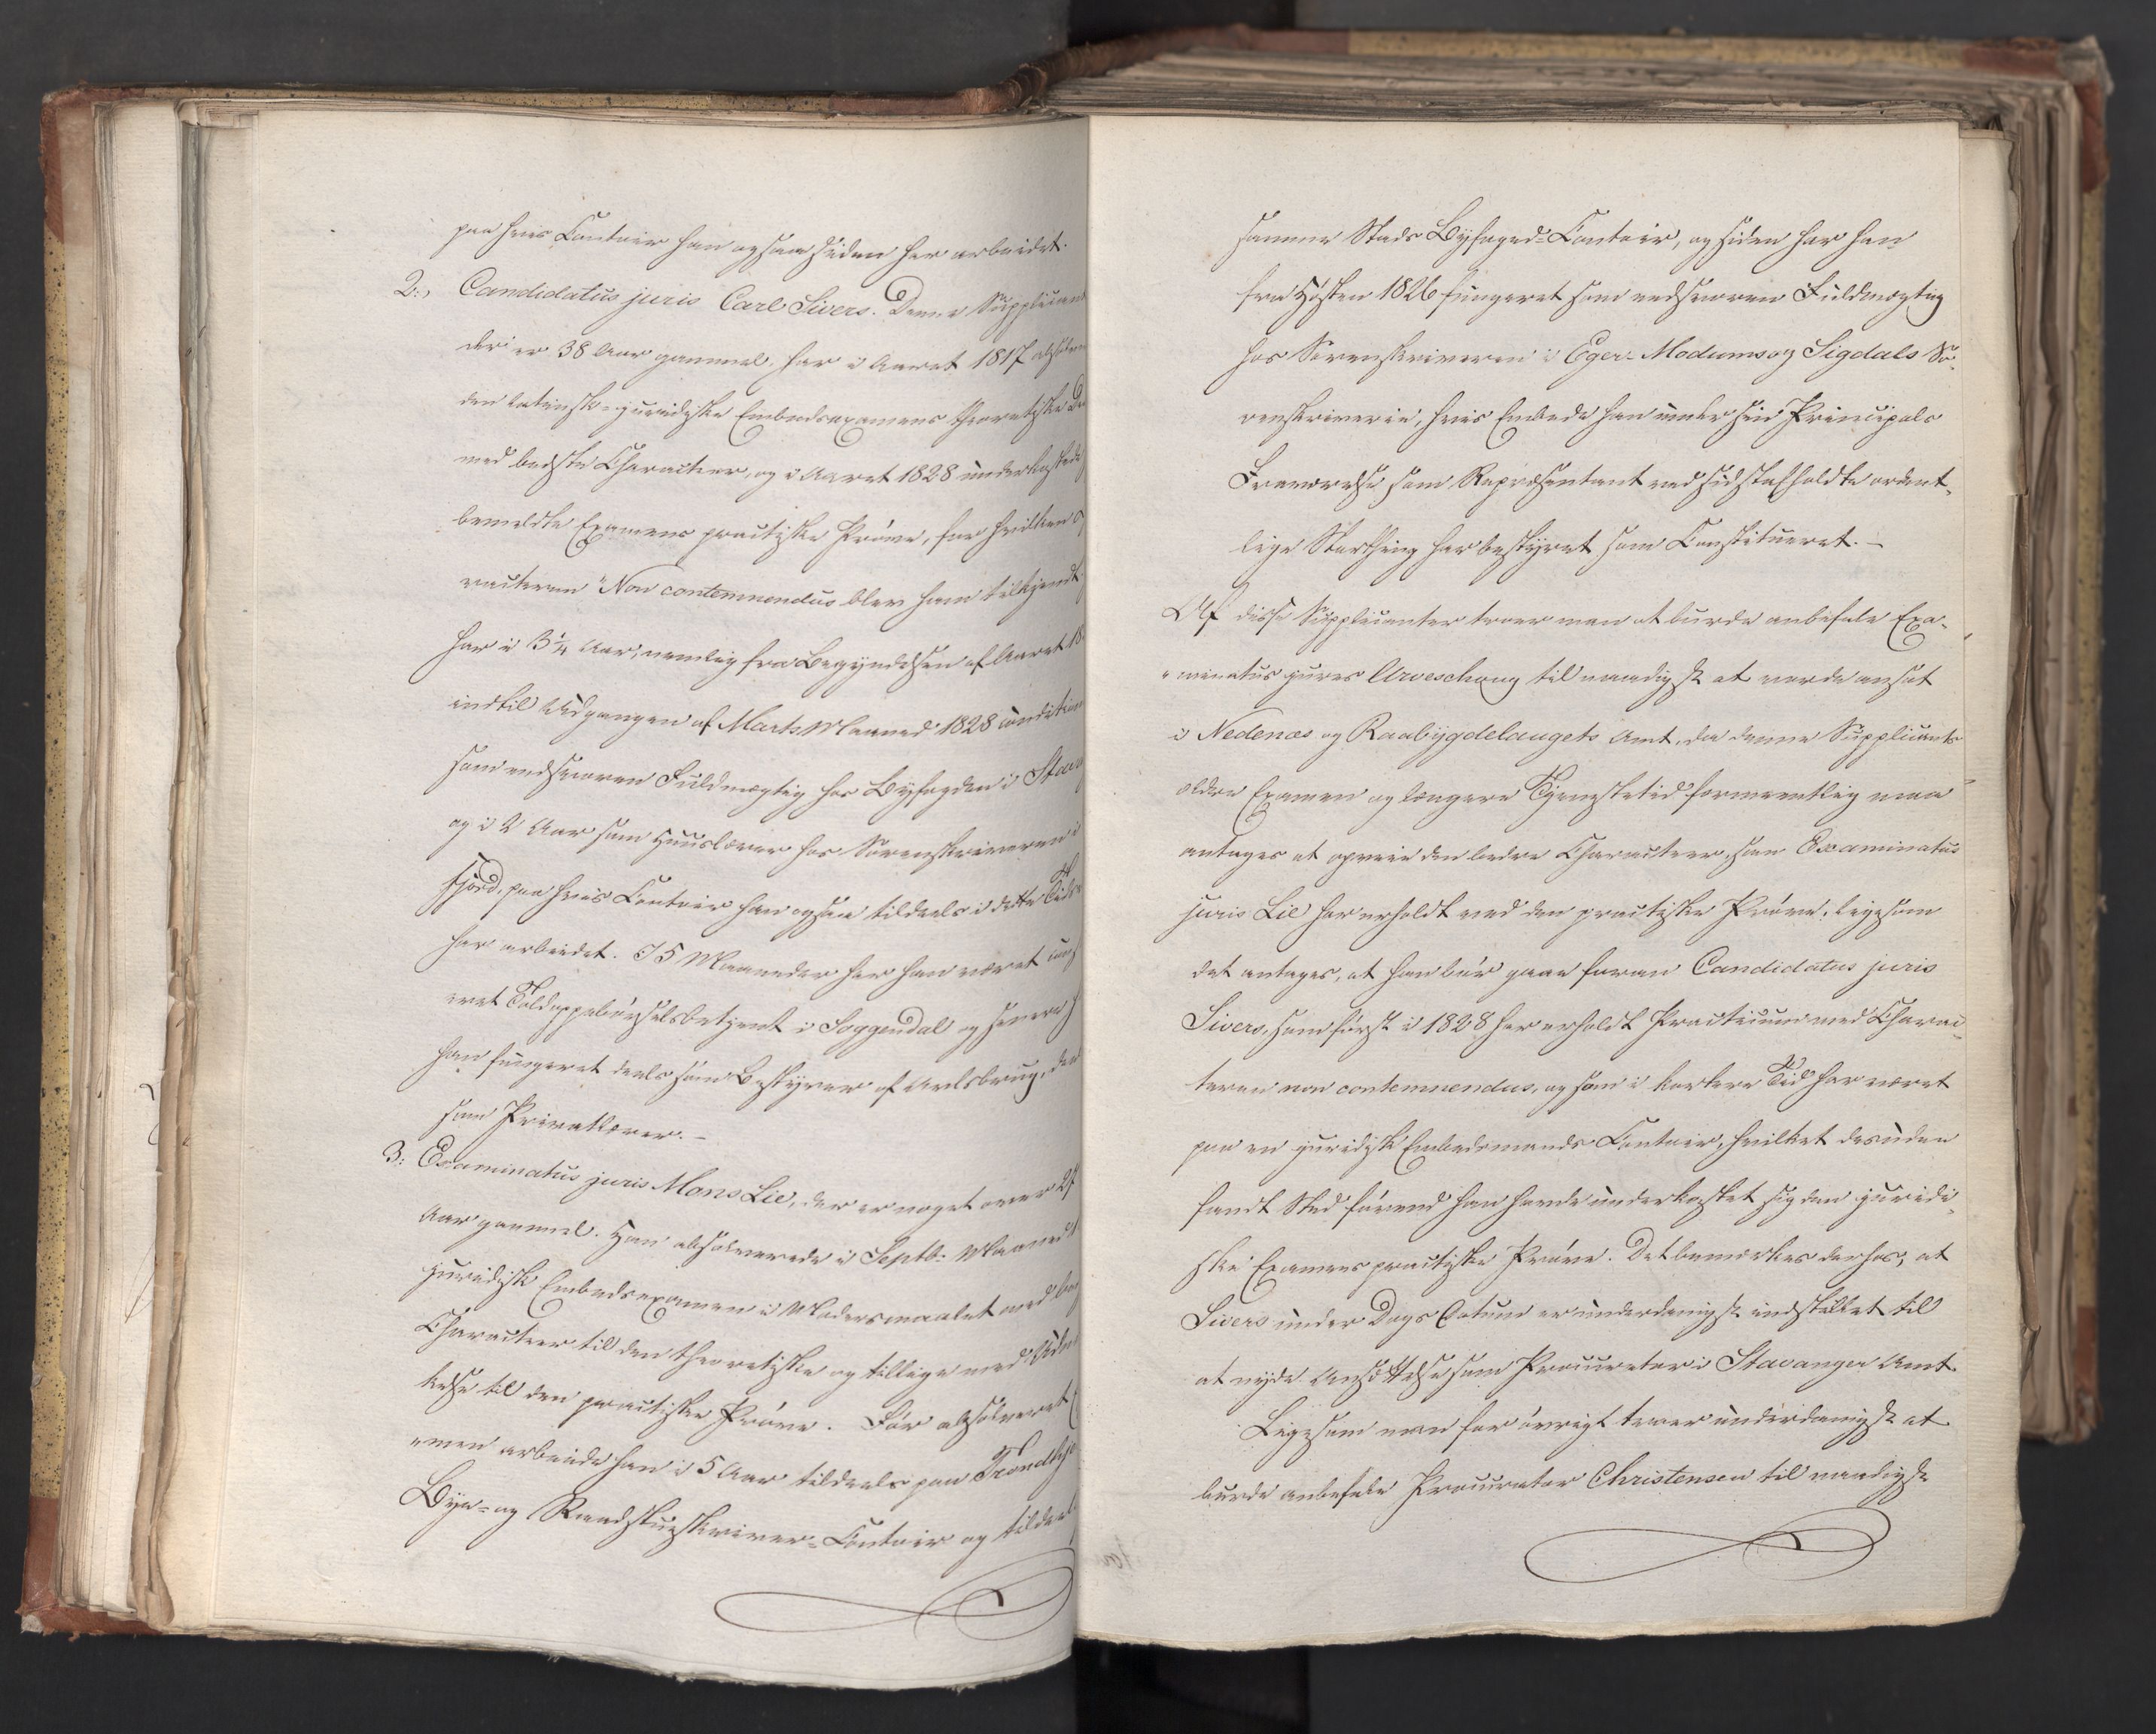 paa hvis Contoir han ogsaa siden har arbeidet.
2:, Candidatus juris Carl Sivers. Denne Supplicant
der er 38 Aar gammel, har i Aaret 1817 absolve
den latinsk-juridiske Embedsexamens theoretiske De
med bedste Characteer, og i Aaret 1828 underkastede
bemeldte Examens practiske Prøve, for hvilken
racteren "Non contemnendus blev ham tilkjendt.
har i 3¼ Aar, nemlig fra Begyndelsen af Aaret 18
indtil Udgangen af Marts Maaned 1828 condition
som edsvoren Fuldmægtig hos Byfogden i Stav
og i 2 Aar som Huuslærer hos Sorenskriveren i
fjord, paa hvis Contoir han ogsaa tildeels i dette Tids
har arbeidet. I 5 Maaneder har han været
eret Toldoppebørselsbetjent i Soggendal og senere
han fungeret deels som Bestyrer af Avlsbrug, de
som Privatlærer. –
3: Examinatus juris Mons Lie, der er noget over 27
Aar gammel. Han absolverede i Septb: Maaned
juridisk Embedsexamen i Modersmaalet med be
Characteer til den theoretiske og tillige med Udm
kelse til den practiske Prøve. Før absolveret E
"men arbeide han i 5 Aar tildeels paa Trondhj
Bye- og Raadstueskriver-Contoir og tildeel
samme Stads Byfoged-Contoir, og siden har han
fra Høsten 1826 fungeret som edsvoren Fuldmægtig
hos Sorenskriveren i Eger- Modums og Sigdals So-
renskriverie, hvis Embede han under sin Principals
Fraværelse som Repræsentant ved sidstafholdte ordent-
lige Storthing har bestyret som Constitueret. –
Af disse Supplicanter troer man at burde anbefale Exa-
"minatus jures Arveschoug til naadigst at vorde ansat
i Nedenæs og Raabygdelaugets Amt, da denne Supplicants
ældre Examen og længere Tjenestetid formeentlig maa
antages at opveie den bedre Characteer, som Examinatus
juris Lie har erholdt ved den practiske Prøve, ligesom
det antages, at han bør gaae foran Candidatus juris
Sivers, som først i 1828 har erholdt Practicum med Charac-
teren non contemnendus, og som i kortere Tid har været
paa en juridisk Embedsmands Contoir, hvilket desuden
fandt Sted førend han havde underkastet sig den juridi-
ske Examens practiske Prøve. Det bemærkes derhos, at
Sivers under Dags Datum er underdanigst indstillet til
at nyde Ansættelse som Procurator i Stavanger Amt.
Ligesom man for øvrigt troer underdanigst at
burde anbefale Procurator Christensen til naadigst